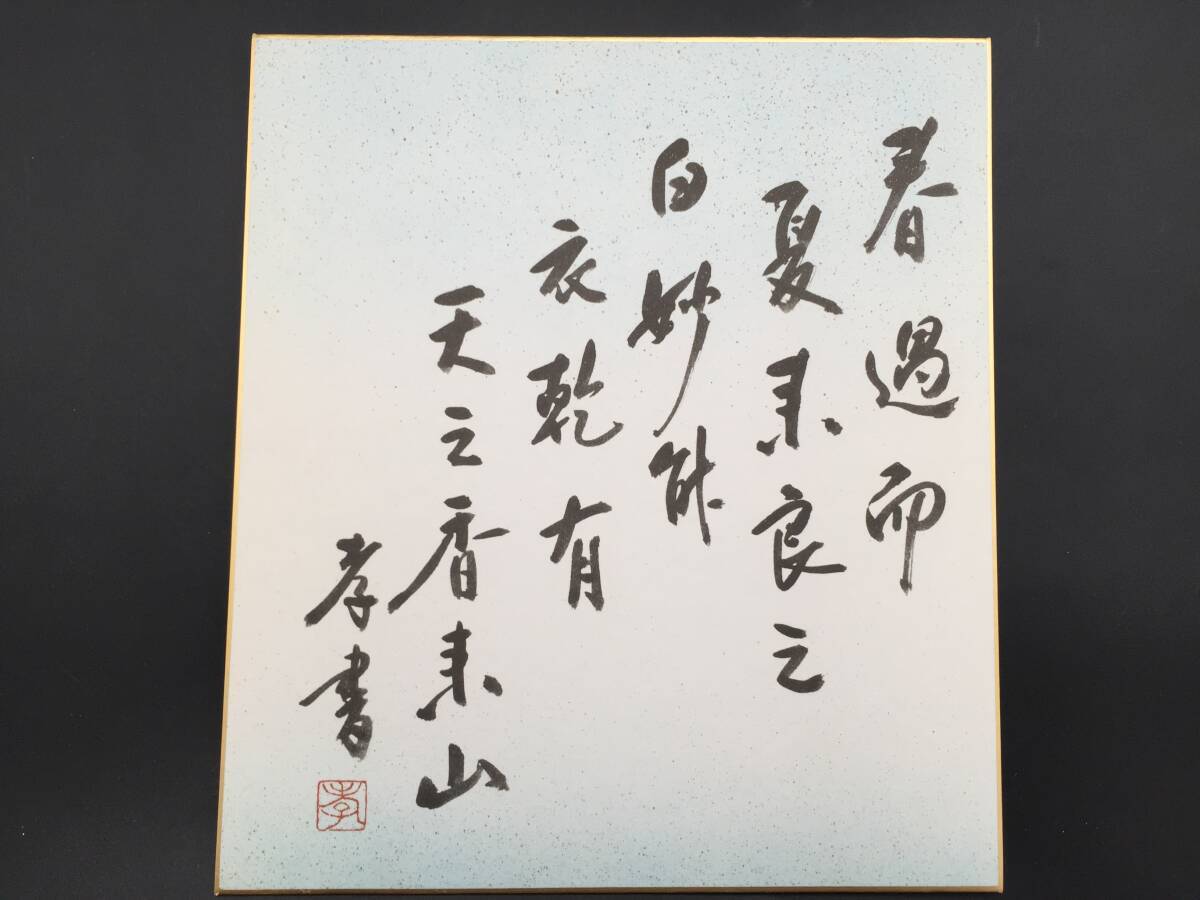 春過而
夏来良之
白妙能
衣乾有
天之香来山
孝書
孝